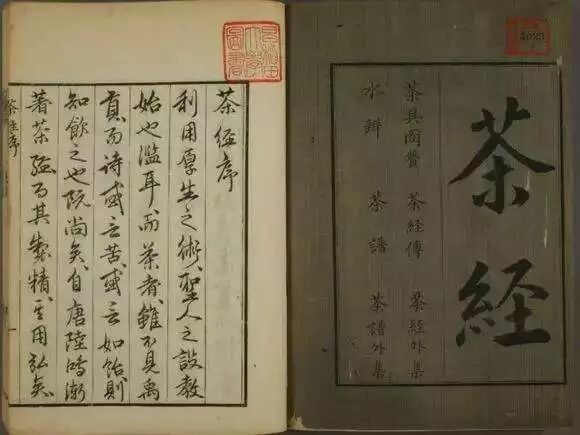 茶經
茶具圖贊 茶經傳 茶經外集
水辨 茶譜 茶譜外集
茶經序
利用厚生之術聖人之設教
始也濫耳而茶者雖不見禹
貢而詩或云苦或云如飴則
知飲之也既尚矣自唐陸鴻漸
著茶經而其製精其用弘矣
茶經序